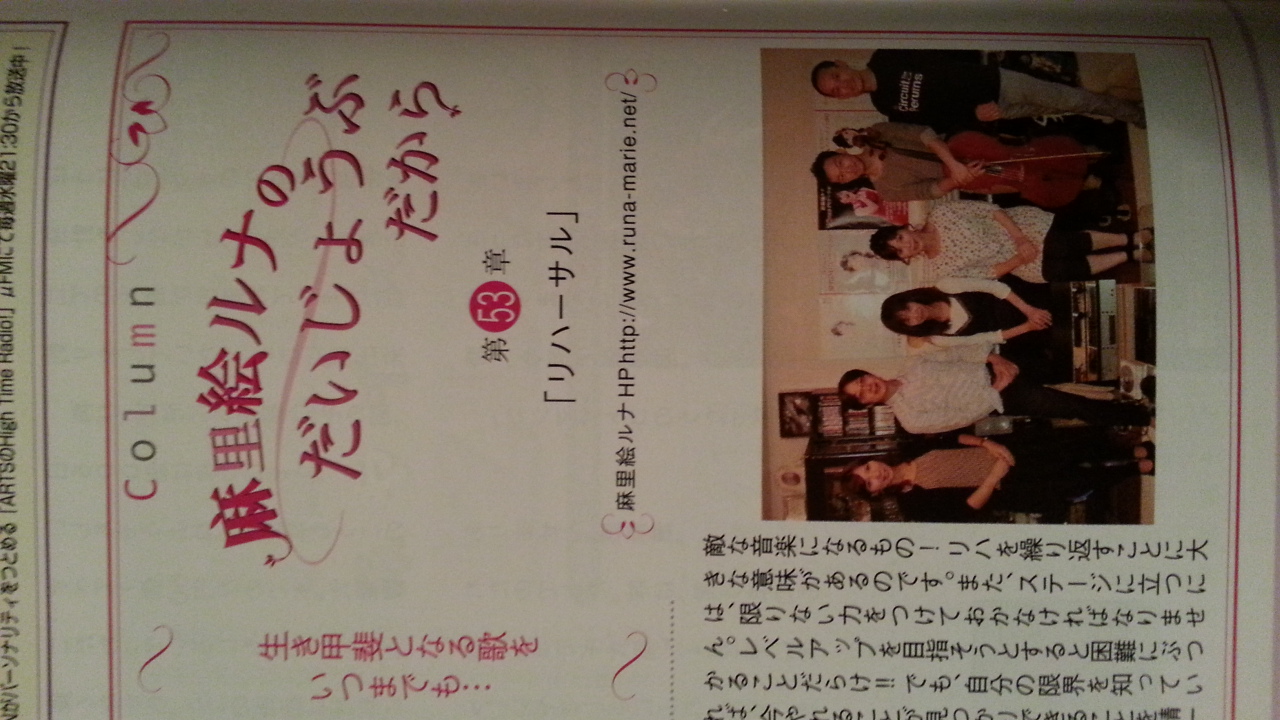 がパーソナリティをつとめる「ARTSのHigh Time Radio!」μFMにて毎週水曜21:30から放送中!
Column
麻里絵ルナの
だいじょうぶ
だから
第53章
「リハーサル」
麻里絵ルナHP http://www.runa-marie.net/
生き甲斐となる歌を
いつまでも…
敵な音楽になるもの！リハを繰り返すことに大
きな意味があるのです。また、ステージに立つに
は、限りない力をつけておかなければなりませ
ん。レベルアップを目指そうとすると困難にぶつ
かることだらけ!!でも、自分の限界を知ってい
れば、今やれることが見つかりできることを精一
Circuit